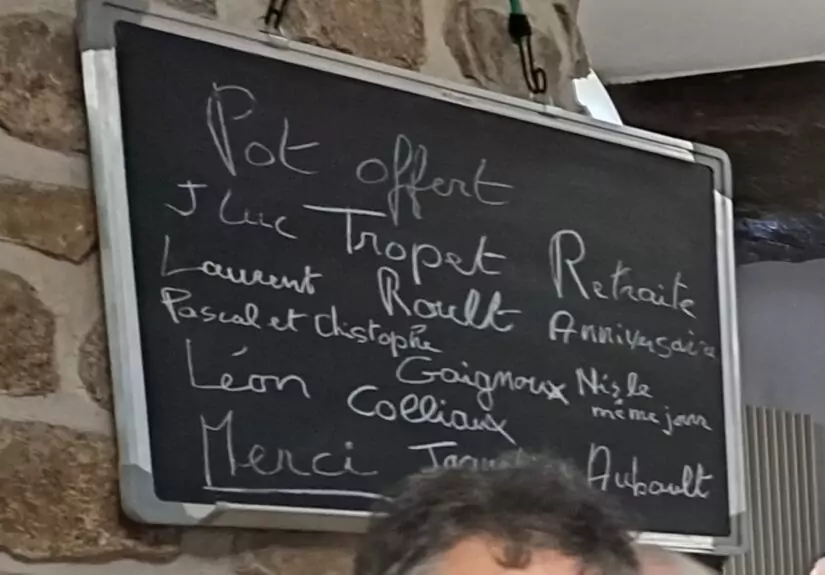 Pot offert
J Luc Tropet Retraite
Laurent Roult Anniversaire
Pascal et Chistophe Gaignoux Nis le même jour
Léon Colliaux
Merci Aubault